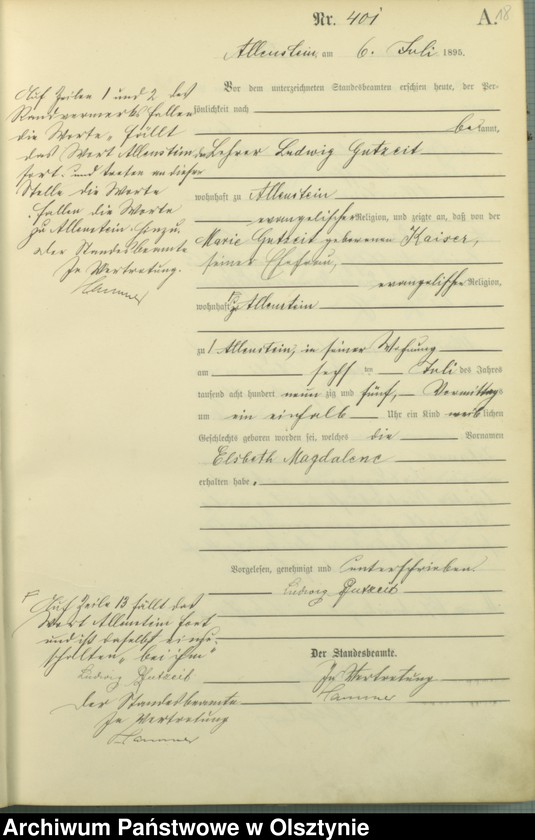 Nr. 401
A.
18
Allenstein, am 6. Juli 1895.
Vor dem unterzeichneten Standesbeamten erschien heute, der Per-
sönlichkeit nach
bekannt,
der Lehrer Ludwig Gutzeit
wohnhaft zu Allenstein
evangelischer Religion, und zeigte an, daß von der
Marie Gutzeit geborenen Kaiser,
seiner Ehefrau,
evangelischer Religion,
wohnhaft zu Allenstein
zu Allenstein, in seiner Wohnung
am sechsten Juli des Jahres
tausend acht hundert neunzig und fünf, Vormittags
um ein einhalb Uhr ein Kind weiblichen
Geschlechts geboren worden sei, welches die Vornamen
Elsbeth Magdalene
erhalten habe.
Vorgelesen, genehmigt und unterschrieben
Ludwig Gutzeit
Der Standesbeamte.
In Vertretung
Hammer
Auf Zeilen 1 und 2 des
Randvermerks fallen
die Worte, füllt
das Wort Allenstein
fort und treten an dieser
Stelle die Worte
fallen die Worte
zu Allenstein hinzu.
der Standesbeamte
In Vertretung.
Hammer
Auf Zeile 13 fällt das
Wort Allenstein fort
und ist daselbst einzu-
schalten "bei ihm"
Ludwig Gutzeit
Der Standesbeamte
In Vertretung
Hammer
Archiwum Państwowe w Olsztynie